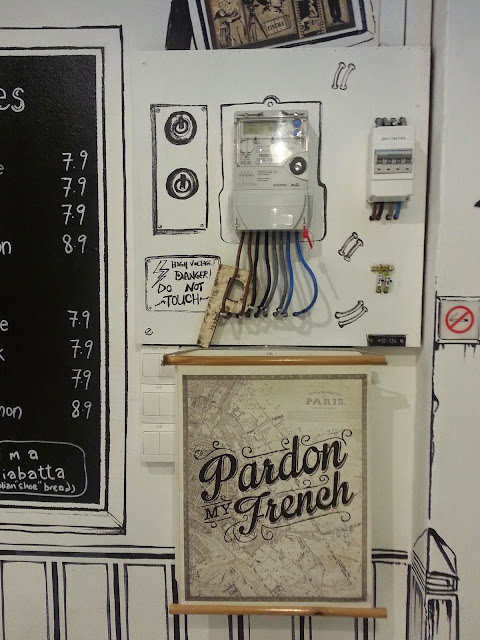 es
7.9
7.9
7.9
8.9
7.9
7.9
7.9
8.9
ma
iabatta
HIGH VOLTAGE
DANGER!
DO NOT
TOUCH
PARIS
Pardon
MY
French